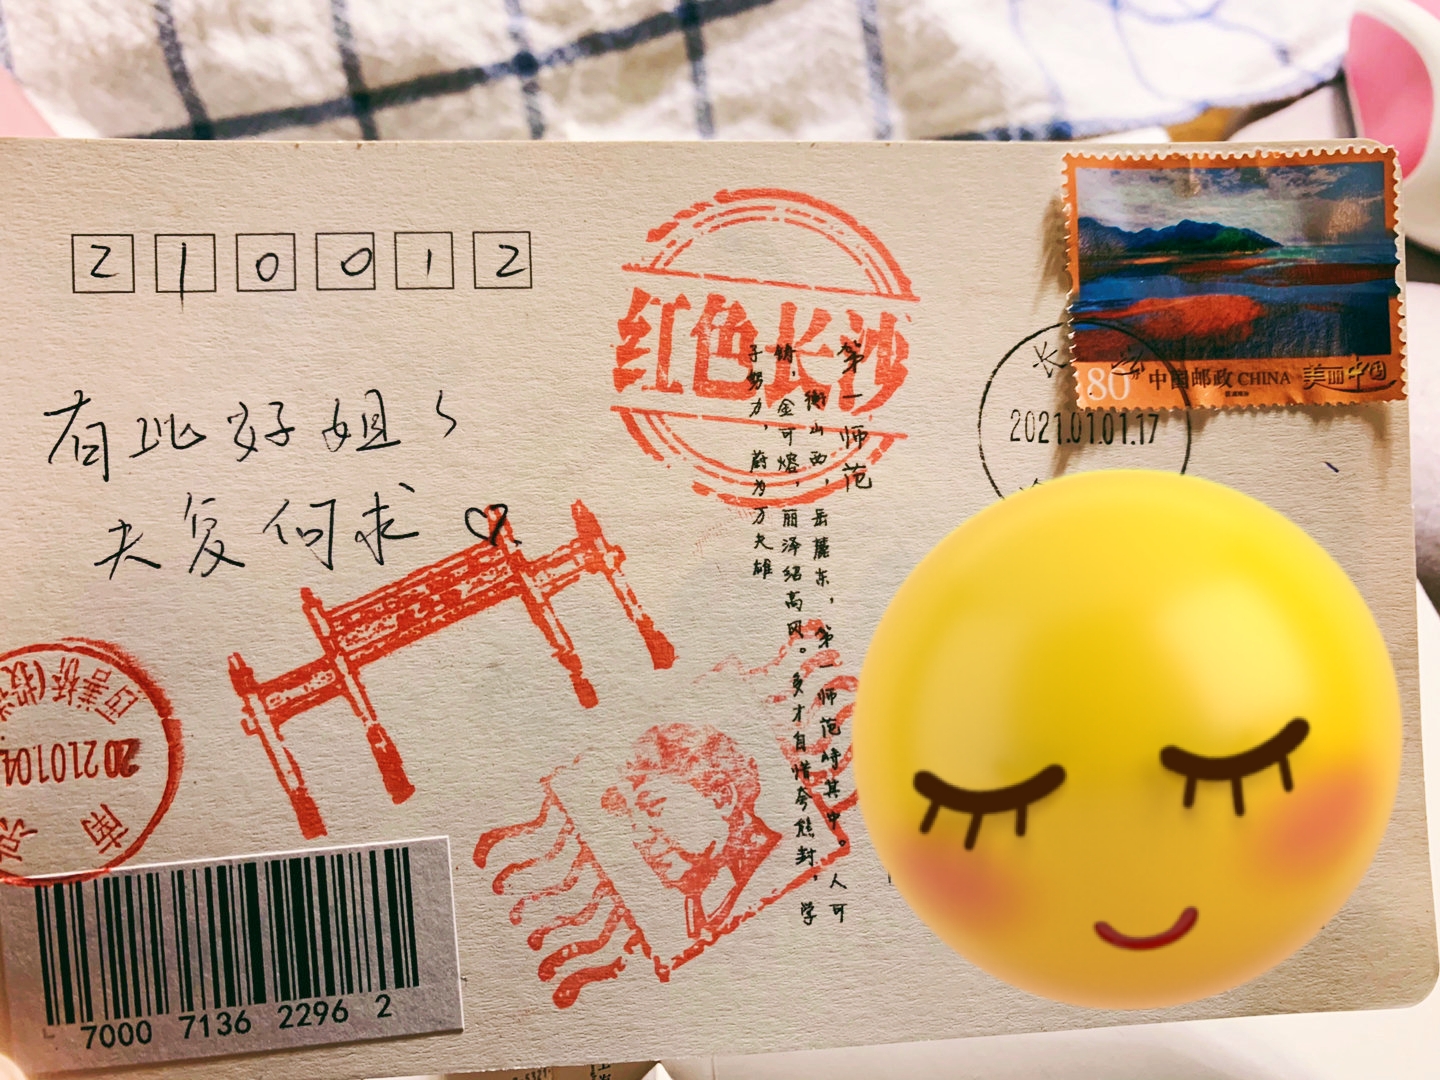 210012
有此好姐々
夫复何求♡
红色长沙
第一师范
衡山西，岳麓东，第一师范峙其中。人可
铸，金可熔，丽泽绍高风。多才自惜夸熊封，学
子努力，蔚为万夫雄
80 中国邮政 CHINA 美丽中国
长沙
2021.01.01.17
南京
2021.01.04
西善桥(投
7000 7136 2296 2